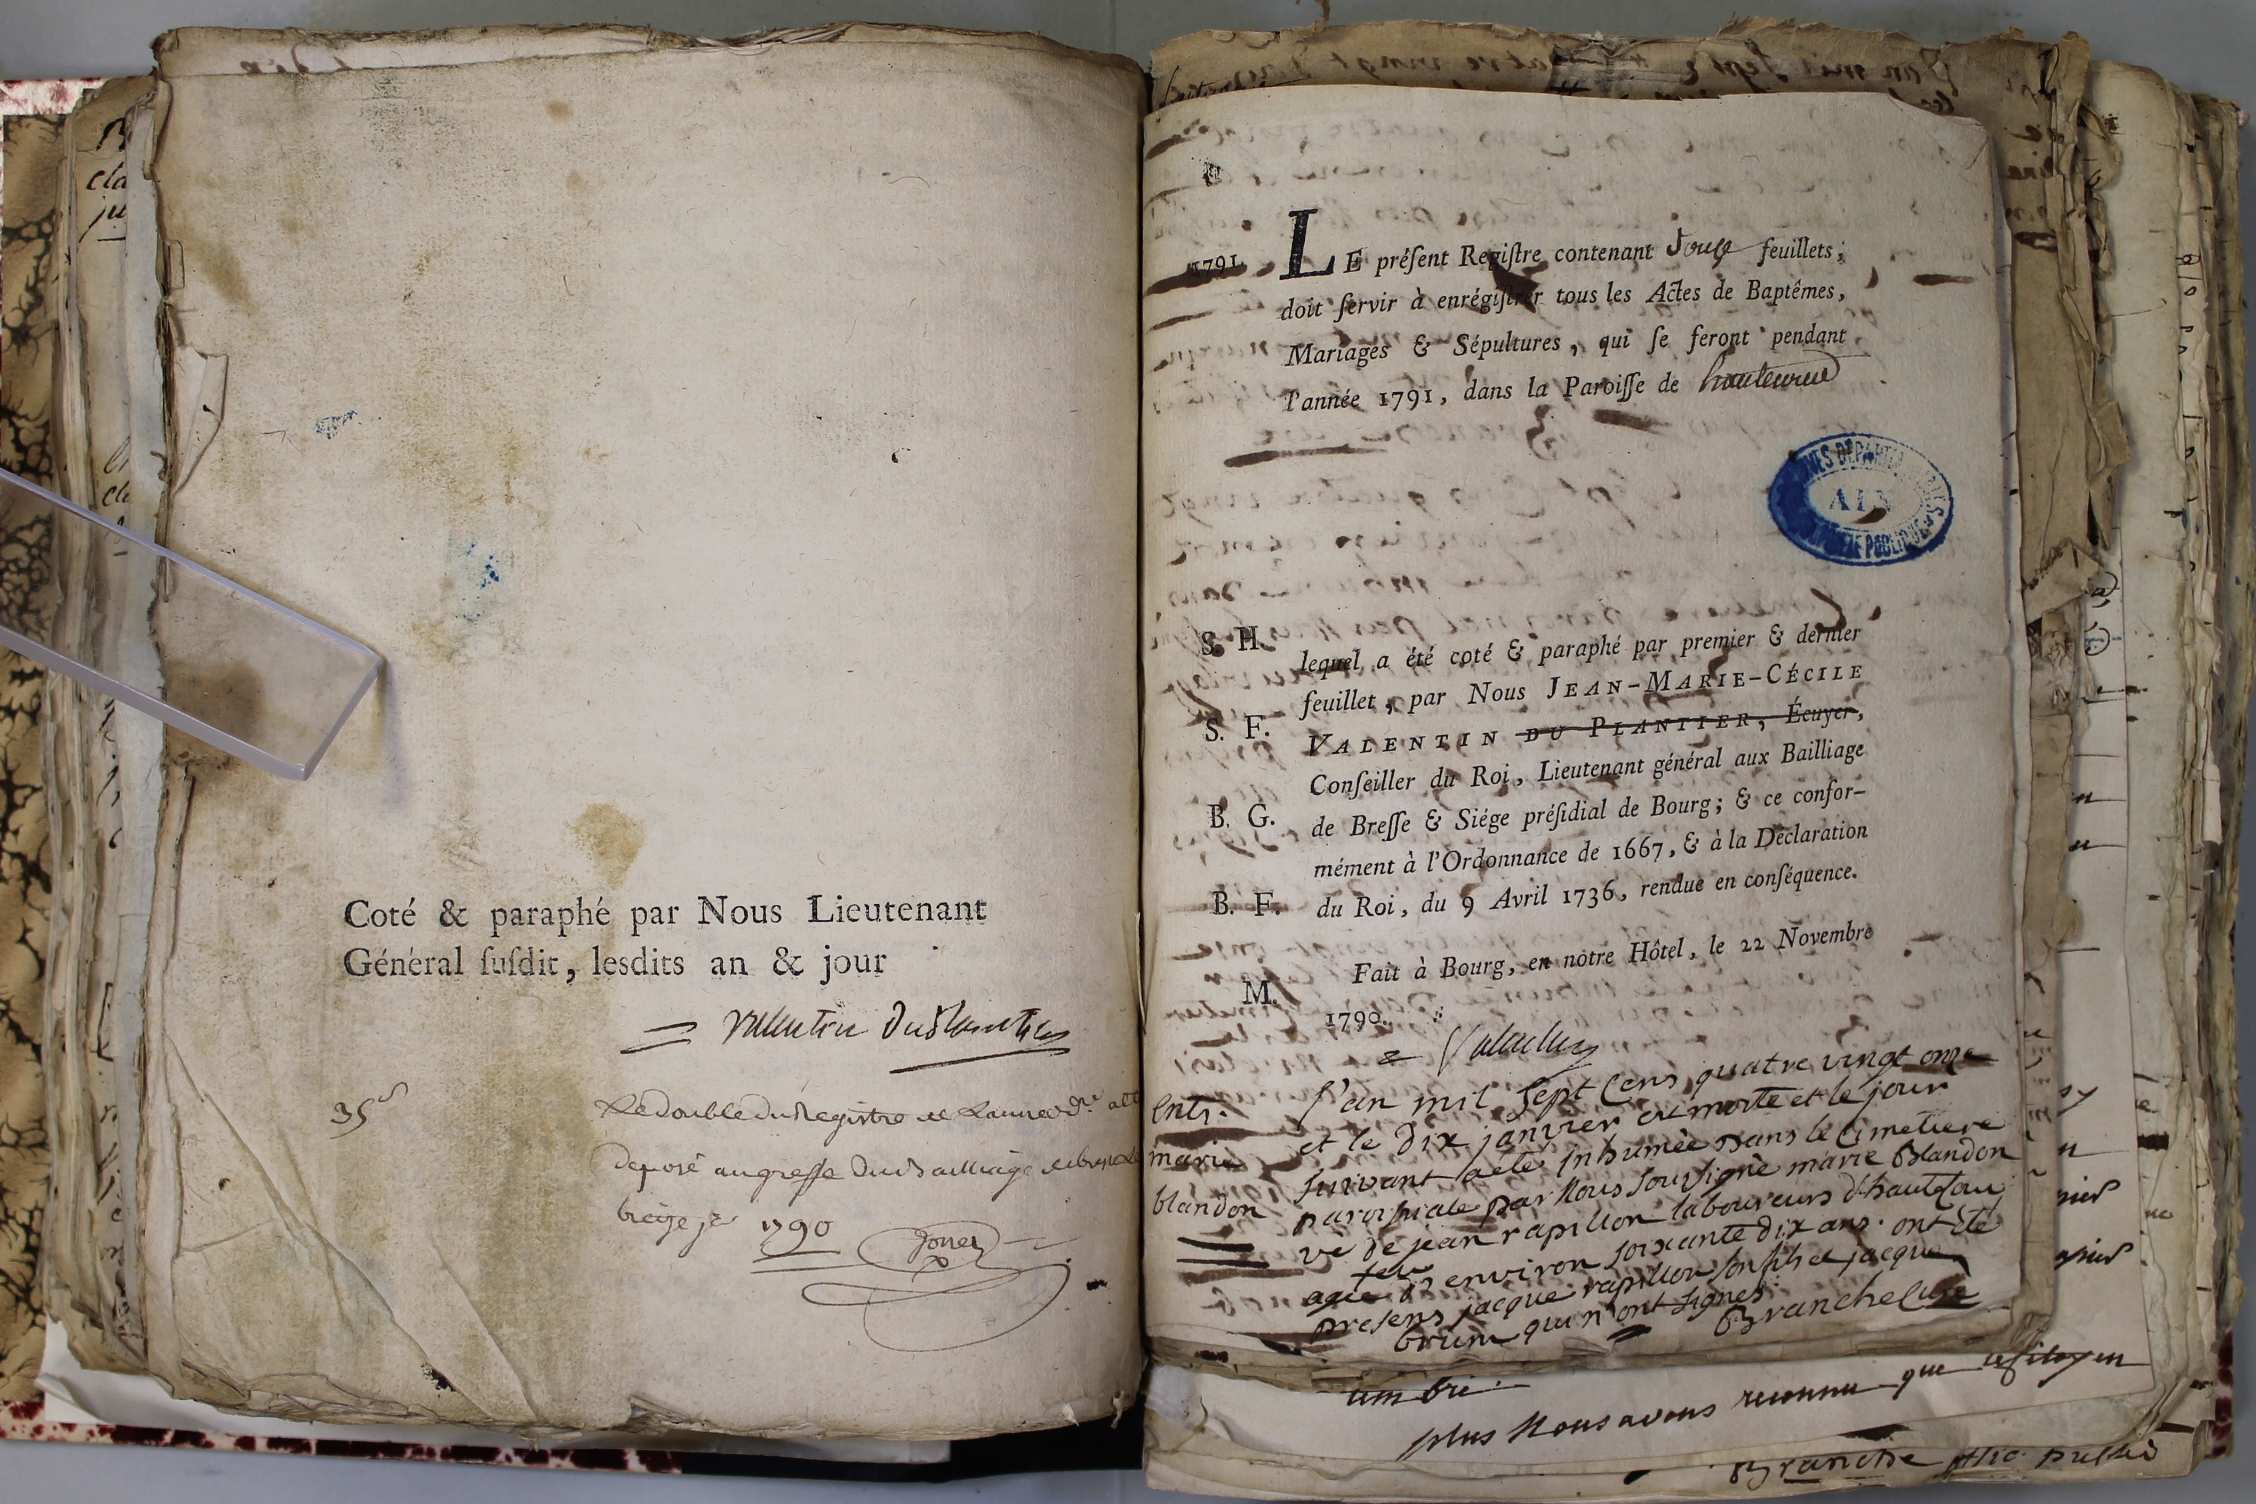 Coté & paraphé par Nous Lieutenant
Général ſuſdit, lesdits an & jour
Valentin Duplantier
35
Le double du Registre de Lannee
deposé au greffe du Bailliage
1790
1791.
LE préſent Regiſtre contenant douze feuillets;
doit ſervir à enrégiſtrer tous les Actes de Baptêmes,
Mariages & Sépultures, qui ſe feront pendant
l'année 1791, dans la Paroiſſe de hautecour
ARCHIVES DÉPARTEMENTALES
AIN
PROPRIÉTÉ PUBLIQUE
S. H.
lequel a été coté & paraphé par premier & dernier
feuillet, par Nous JEAN-MARIE-CÉCILE
S. F.
VALENTIN DU PLANTIER, Écuyer,
Conſeiller du Roi, Lieutenant général aux Bailliage
B. G.
de Breſſe & Siége préſidial de Bourg; & ce confor-
mément à l'Ordonnance de 1667, & à la Déclaration
B. F.
du Roi, du 9 Avril 1736, rendue en conſéquence.
Fait à Bourg, en notre Hôtel, le 22 Novembre
M.
1790.
Valentin
Entr.
marie
blandon
l'an mil sept Cens quatre vingt onze
et le dix janvier est morte et le jour
suivant a ete inhumée dans le Cimetiere
paroissiale par Nous soussigné marie blandon
ve de jean rapillon laboureurs d'hautecour
feu
agée d'environ soixante dix ans. ont été
presens jacque rapillon son fils et jacque
brun qui n'ont signés
Branche Curé
plus Nous avons reconnu que le citoyen
Branche